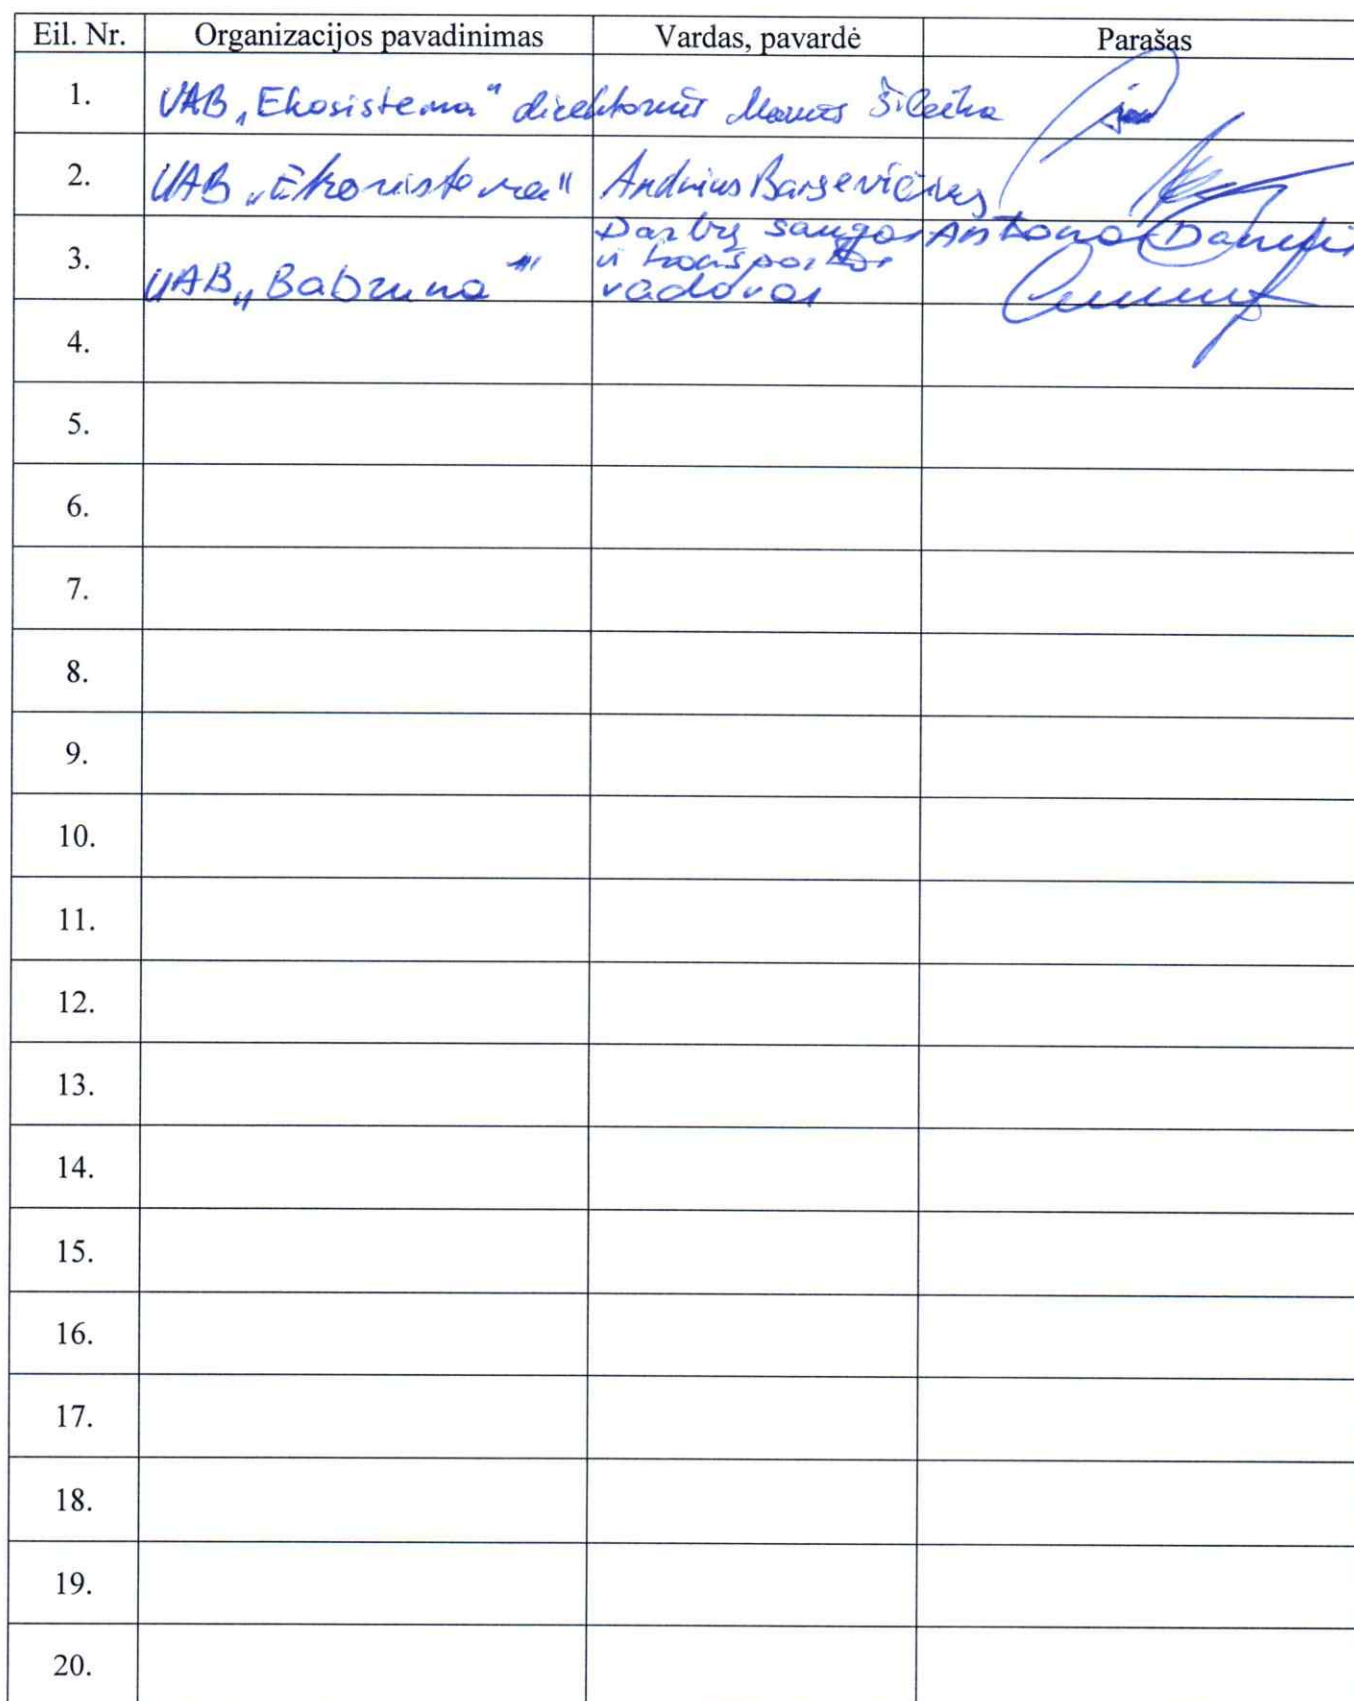 Eil. Nr. Organizacijos pavadinimas Vardas, pavardė Parašas
1. UAB „Ekosistema" direktorius Marius Šileika
2. UAB „Ekosistema" Andrius Barsevičius
Darbų saugos Antono
ir transporto
3. UAB „Babruna" vadovas
4.
5.
6.
7.
8.
9.
10.
11.
12.
13.
14.
15.
16.
17.
18.
19.
20.